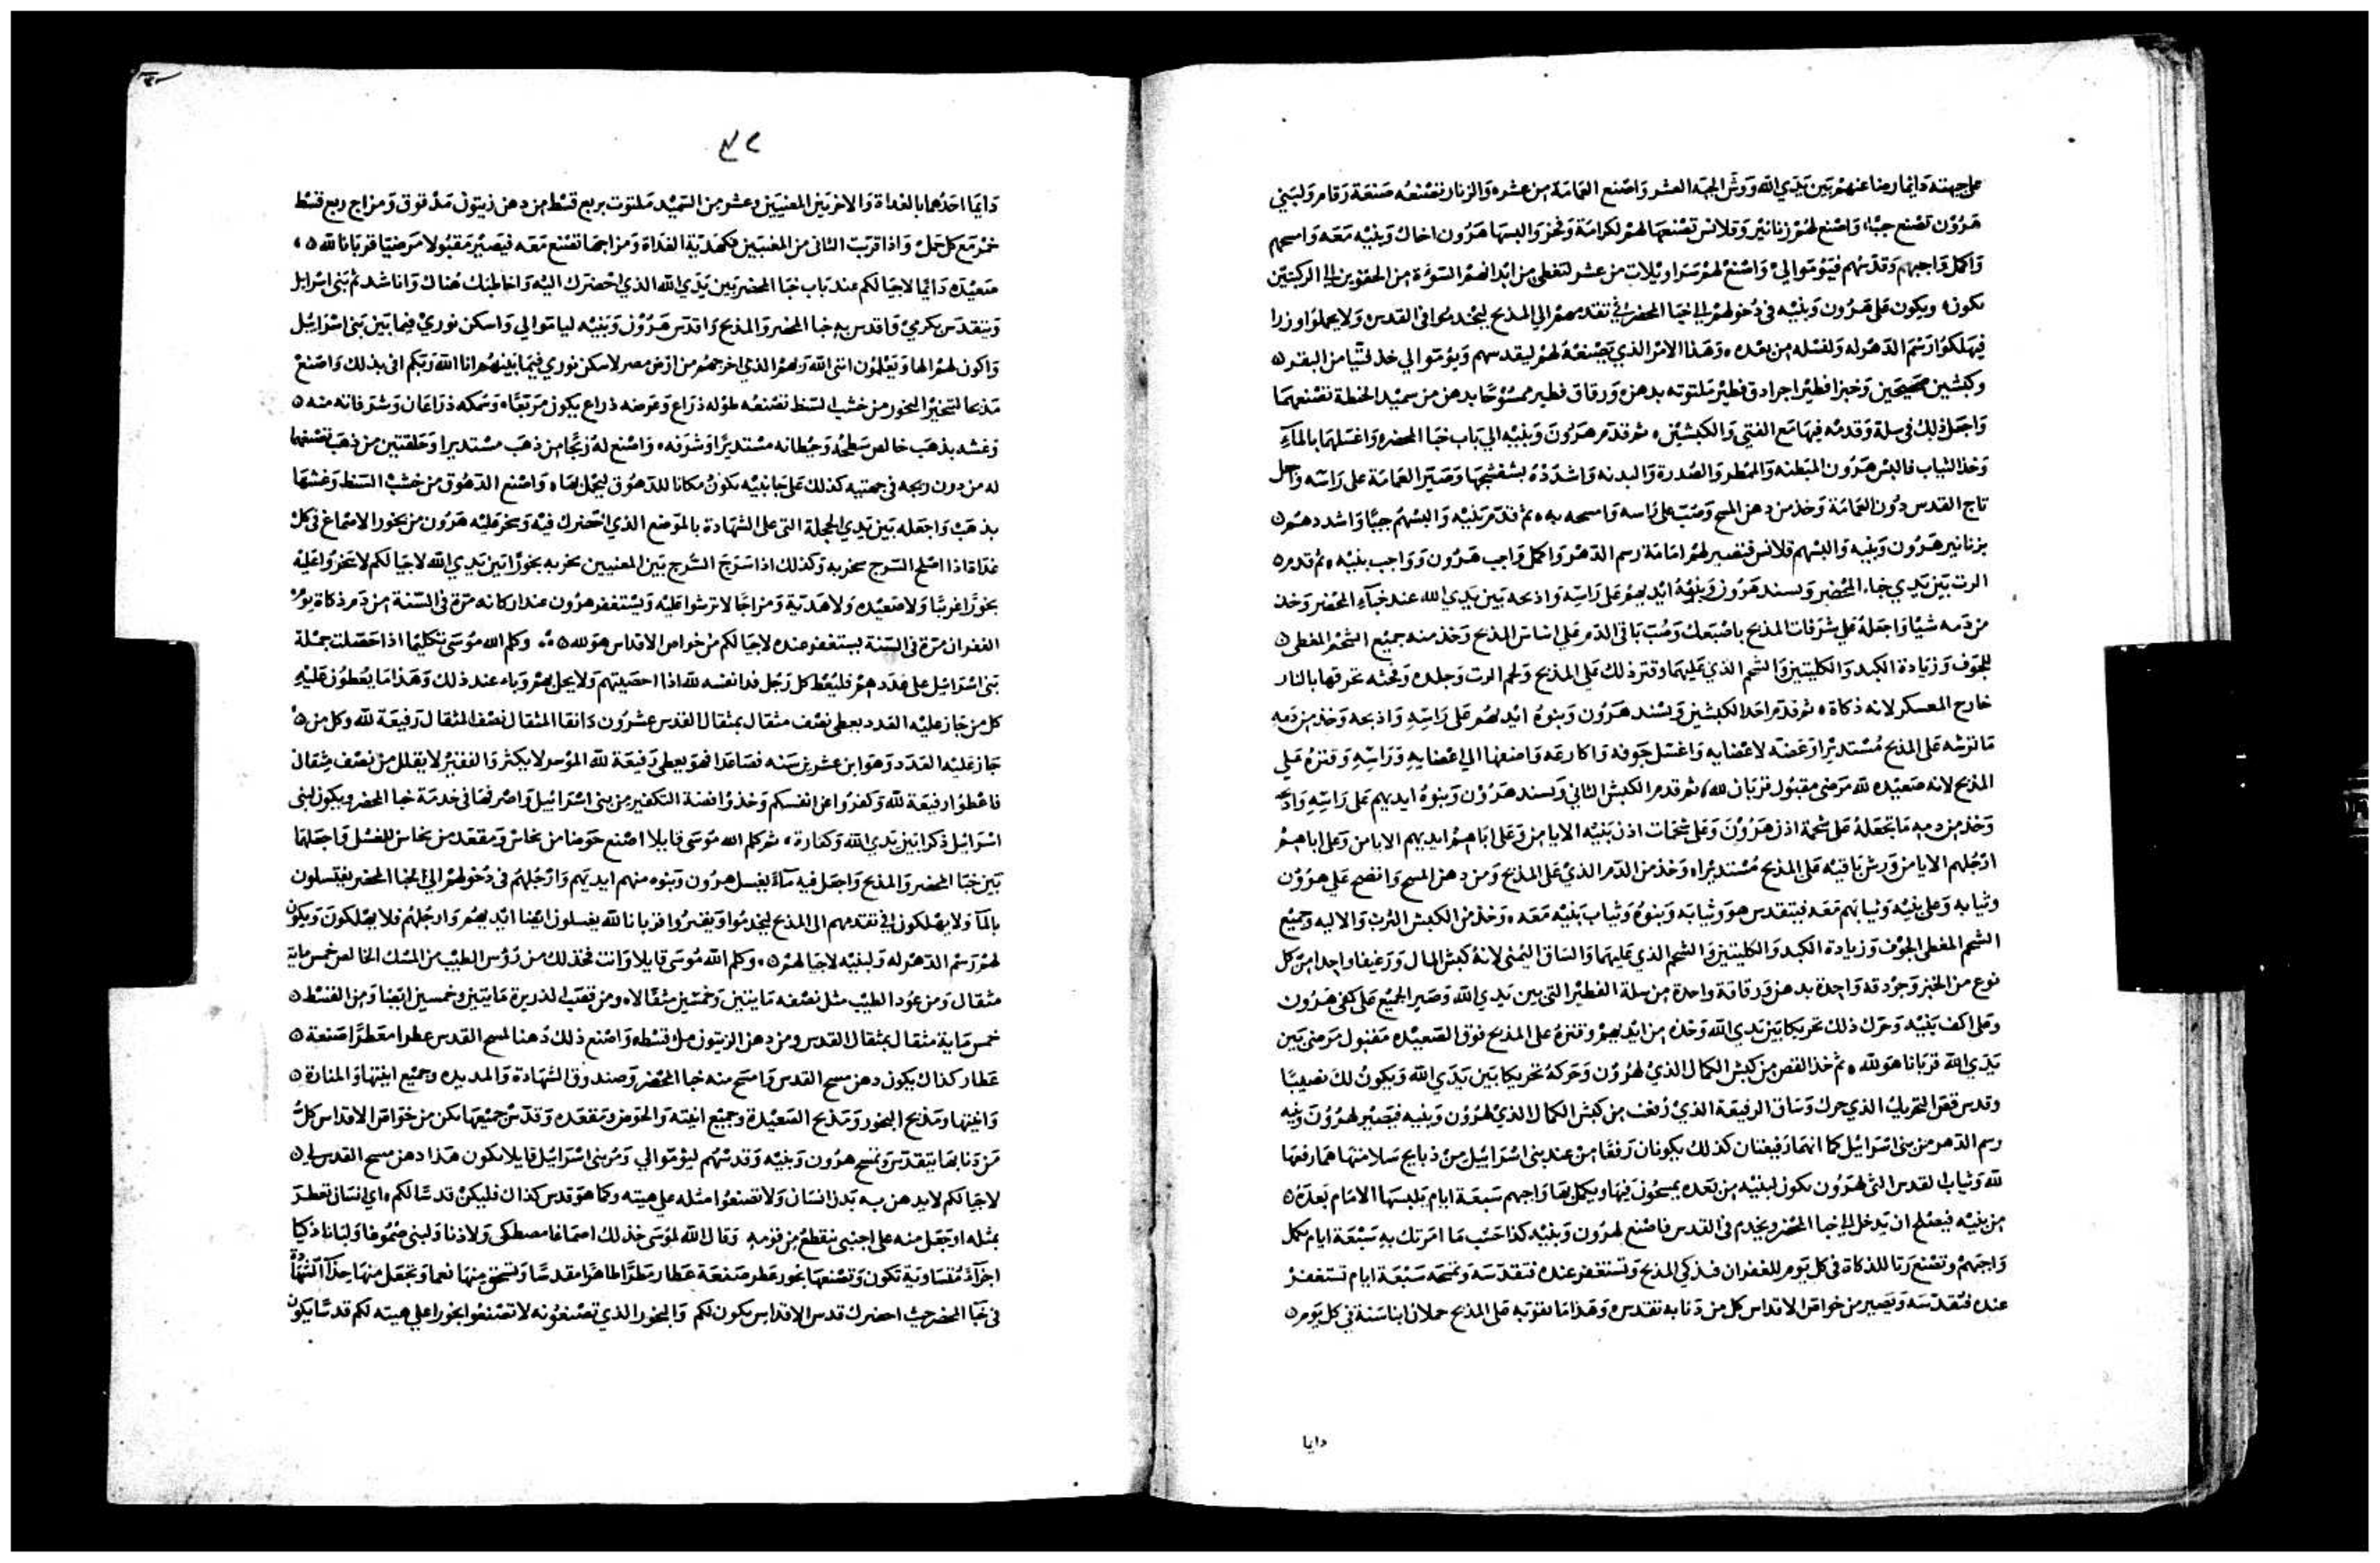 على جهته دايما رضا عنهم بين يدي الله ووش الجبه العشر واصنع العمامة من عشر والزنار تصنعه صنعة رقام ولبني
هرون تصنع جببا واصنع لهم زنانير وقلانس تصنعها لهم لكرامة وفخر والبسها هرون اخاك وبنيه معه وامسحهم
واكمل واجبهم وقدسهم فيؤموا لي واصنع لهم سراويلات من عشر لتغطي من ابدانهم السوءة من الحقوين الى الركبتين
تكون ويكون على هرون وبنيه في دخولهم الى خبا المحضر في تقدمهم الى المذبح ليخدموا في القدس ولا يحملوا وزرا
فيهلكوا رسم الدهر له ولنسله من بعده وهذا الامر الذي تصنعه لهم ليقدسهم ويؤموا لي خذ لتيا من البقر
وكبشين صحيحين وخبزا فطيرا جرادق فطير ملتوته بدهن ورقاق فطير ممسوحا بدهن من سميد الحنطة تصنعهما
واجعل ذلك في سلة وقدمه فيها مع الفتى والكبشين ثم قدم هرون وبنيه الى باب خبا المحضر واغسلهما بالماء
وخذ الثياب فالبس هرون المبطنه والممطر والصدرة والبدنه واشدده بشفشجها وصير العمامة على راسه واجعل
تاج القدس دون العمامة وخذ من دهن المسح وصب على راسه وامسحه به ثم قدم بنيه والبسهم جببا واشددهم
بزنانير هرون وبنيه والبسهم قلانس فتصير لهم امامة رسم الدهر واكمل واجب هرون وواجب بنيه ثم قدم
الرت بين يدي خباء المحضر ويسند هرون وبنوه ايديهم على راسه واذبحه بين يدي الله عند خباء المحضر وخذ
من دمه شيا واجعله على شرفات المذبح باصبعك وصب باقي الدم على اساس المذبح وخذ منه جميع الشحم المغطي
للجوف وزيادة الكبد والكليتين والشحم الذي عليهما وقتر ذلك على المذبح ولحم الرت وجلده وفرثه تحرقها بالنار
خارج المعسكر لانه ذكاة ثم قدم احد الكبشين ويسند هرون وبنوه ايديهم على راسه واذبحه وخذ من دمه
ما ترشه على المذبح مستديرا وعضه لاعضايه واغسل جوفه واكارعه واضعها الى اعضايه وراسه وقتره على
المذبح لانه صعيده لله مرضى مقبول قربان لله ثم قدم الكبش الثاني ويسند هرون وبنوه ايديهم على راسه واذبحه
وخذ من دمه ما تجعله على شحمة اذن هرون وعلى شحمات اذن بنيه الايامن وعلى اباهم ايديهم الايامن وعلى اباهم
ارجلهم الايامن ورش باقيه على المذبح مستديرا وخذ من الدم الذي على المذبح ومن دهن المسح وانضح على هرون
وثيابه وعلى بنيه وثيابهم معه فيتقدس هو وثيابه وبنوه وثياب بنيه معه وخذ من الكبش الثرب والاليه وجميع
الشحم المغطي الجوف وزيادة الكبد والكليتين والشحم الذي عليهما والساق اليمنى لانه كبش الكمال ورغيفا واحدا من كل
نوع من الخبز وجردقه واحدة بدهن ورقاقة واحدة من سلة الفطير التي بين يدي الله وصير الجميع على كفي هرون
وعلى اكف بنيه وحرك ذلك تحريكا بين يدي الله وخذه من ايديهم وقتره على المذبح فوق الصعيده مقبول مرضى بين
يدي الله قربانا هو لله ثم خذ القص من كبش الكمال الذي لهرون وحركه تحريكا بين يدي الله ويكون لك نصيبا
وقدس قص التحريك الذي حرك وساق الرفيعة الذي رفعت من كبش الكمال الذي لهرون وبنيه فيصير لهرون وبنيه
رسم الدهر من بني اسرائيل كما انهما رفيعتان كذلك يكونان رفعا من عند بني اسرائيل من ذبايح سلامتها هما رفعها
لله وثياب القدس التي لهرون تكون لبنيه من بعده يمسحون فيها ويكمل بها واجبهم سبعة ايام يلبسها الامام بعده
من بنيه فيصلح ان يدخل الى خبا المحضر ويخدم في القدس فاصنع لهرون وبنيه كذا حسب ما امرتك به سبعة ايام تكمل
واجبهم وتصنع رتا للذكاة في كل يوم للغفران فذكي المذبح وتستغفر عنده فتقدسه وتمسحه سبعة ايام تستغفر
عنده فتقدسه ويصير من خواص الاقداس كل من دنا به تقدس وهذا ما تقربه على المذبح حملان ابنا سنة في كل يوم
دايما
٤٢
دايما احدهما بالغداة والاخر بين المغيبين وعشر من السميد ملتوت بربع قسط من دهن زيتون مدقوق ومزاج ربع قسط
خمر مع كل حمل واذا قربت الثاني من المغيبين فكهدية الغداة ومزاجها تصنع معه فيصير مقبولا مرضيا قربانا لله
صعيده دايما لاجيالكم عند باب خبا المحضر بين يدي الله الذي احضرك اليه واخاطبك هناك واناشد ثم بني اسرايل
ويتقدس بكرمي واقدس به خبا المحضر والمذبح واقدس هرون وبنيه ليا موالي واسكن نوري فيما بين بني اسرائيل
واكون لهم الها ويعلمون انني الله ربهم الذي اخرجهم من ارض مصر لاسكن نوري فيما بينهم انا الله ربكم افي بذلك واصنع
مذبحا لتبخير البخور من خشب السنط تصنعه طوله ذراع وعرضه ذراع يكون مربعا وسمكه ذراعان وشرفاته منه
وغشه بذهب خالص سطحه وحيطانه مستديرا وشرفه واصنع له زيجا من ذهب مستديرا وحلقتين من ذهب تصنعها
له من دون زيجه في جهتيه كذلك على جانبيه يكون مكانا للدهوق ليحمل بها واصنع الدهوق من خشب السنط وغشها
بذهب واجعله بين يدي الحجلة التي على الشهادة بالموضع الذي احضرك فيه ويبخر عليه هرون من بخور الاصماغ في كل
غداة اذا اصلح السرج يبخر به وكذلك اذا سرج السرج بين المغيبين يبخر به بخورا بين يدي الله لاجيالكم لا تبخروا عليه
بخورا غريبا ولا صعيده ولا هدية ومزاجا لا ترشوا عليه ويستغفر هرون عند اركانه مرة في السنة من دم ذكاة يوم
الغفران مرة في السنة يستغفر عنده لاجيالكم من خواص الاقداس هو لله وكلم الله موسى تكليما اذا حصلت جملة
بني اسرائيل على عددهم فليعط كل رجل فدا نفسه لله اذا احصيتهم ولا يحل بهم وباء عند ذلك وهذا ما يعطون عليه
كل من جاز عليه العدد يعطي نصف مثقال بمثقال القدس عشرون دانقا المثقال نصف المثقال رفيعة لله وكل من
جاز عليه العدد وهو ابن عشرين سنه فصاعدا فهو يعطي رفيعة لله الموسر لا يكثر والفقير لا يقلل من نصف مثقال
فاعطوا رفيعة لله وكفروا عن انفسكم وخذ وا فضة التكفير من بني اسرائيل واصرفها في خدمة خبا المحضر ويكون لبني
اسرائيل ذكرا بين يدي الله وكفارة ثم كلم الله موسى قايلا اصنع حوضا من نحاس ومقعده من نحاس للغسل واجعلها
بين خبا المحضر والمذبح واجعل فيه ماء يغسل هرون وبنوه منهم ايديهم وارجلهم في دخولهم الى الخبا المحضر يغتسلون
بالماء ولا يهلكون او في تقدمهم الى المذبح ليخدموا ويقتروا قربانا لله يغسلون ايضا ايديهم وارجلهم فلا يهلكون ويكون
لهم رسم الدهر له ولبنيه لاجيالهم وكلم الله موسى قايلا وانت فخذ لك من رؤس الطيب من المسك الخالص خمس ماية
مثقال ومن عود الطيب مثل نصفه مايتين وخمسين مثقالا ومن قصب الذريرة مايتين وخمسين ايضا ومن القسط
خمس ماية مثقال بمثقال القدس ومن دهن الزيتون مل قسطه واصنع ذلك دهنا لمسح القدس عطرا معطرا صنعة
عطار كذاك يكون دهن مسح القدس وامسح منه خبا المحضر وصندوق الشهادة والمديده وجميع انيتها والمنارة
وانيتها ومذبح البخور ومذبح الصعيدة وجميع انيته والحوض ومقعده وقدس جميعها تكن من خواص الاقداس كل
من دنا بها يتقدس وتمسح هرون وبنيه وقدسهم ليؤموا لي ومر بني اسرائيل قايلا يكون هذا دهن مسح القدس لي
لاجيالكم لا يدهن به بدن انسان ولا تصنعوا مثله على هيته وكما هو قدس كذاك فليكن قدسا لكم اي انسان تعطر
بمثله او جعل منه على اجنبي ينقطع من قومه وقال الله لموسى خذ لك اصماغا مصطكى ولاذنا ولبنى ضموغا ولبانا ذكيا
اجزاء متساوية تكون وتصنعها بخور عطر صنعة عطار مطرا طاهرا مقدسا ولتسحق منها ناعما وتجعل منها حذاء الشهادة
في خبا المحضر حيث احضرك قدس الاقداس يكون لكم والبخور الذي تصنعونه لا تصنعوا بخورا على هيته لكم قدسا يكون